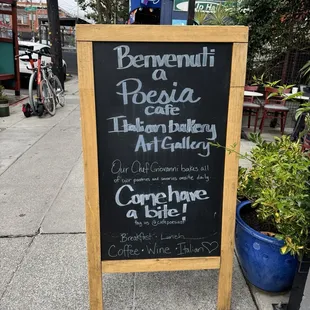 Benvenuti
a
Poesia
cafe
Italian bakery
Art Gallery
Our Chef Giovanni bakes all
of our pastries and savories onsite daily
Come have
a bite!
Breakfast · Lunch
Coffee · Wine · Italian